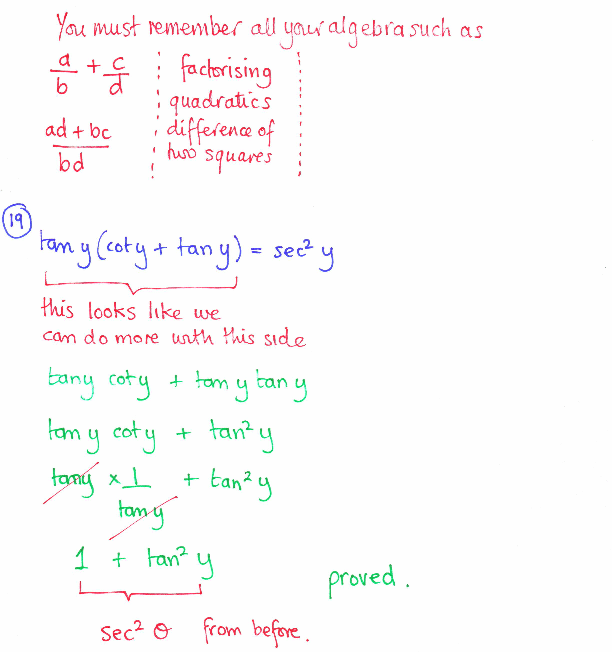 You must remember all your algebra such as
a/b + c/d
factorising
quadratics
ad + bc / bd
difference of
two squares
19
tan y (cot y + tan y) = sec² y
this looks like we
can do more with this side
tan y cot y + tan y tan y
tan y cot y + tan² y
tan y × 1/tan y + tan² y
1 + tan² y
proved.
sec² θ from before.